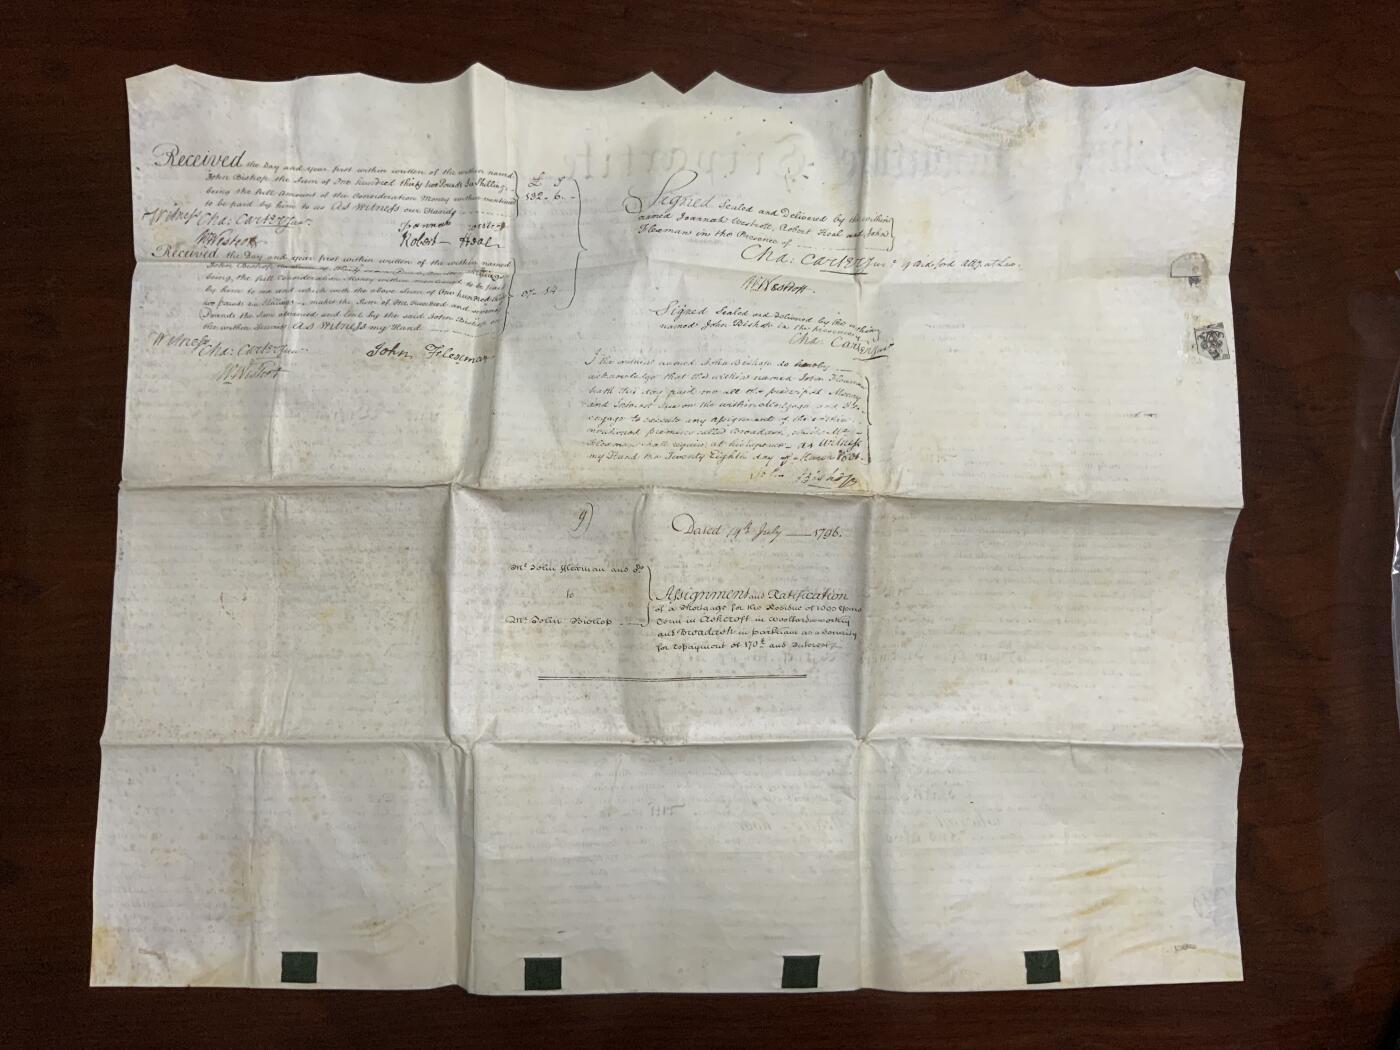 Received the Day and Year first within written of the within named
John Bishop the Sum of One hundred thirty two Pounds Six Shillings
being the full Amount of the Consideration Money within mentioned
to be paid by him to us As Witness our Hands
£ S
132 - 6 -
Witness Cha: Carter Junr.
W Westcott
Robert Heal
Received the Day and Year first within written of the within named
John Bishop
being the full Consideration Money within mentioned to be paid
by him to me and which with the above Sum of One hundred thirty
two pounds six Shillings makes the Sum of One Hundred and seventy
Pounds the Sum advanced and lent by the said John Bishop on
the within Security As Witness my Hand
14
Witness Cha: Carter Junr.
W Westcott
John Flexman
Signed Sealed and Delivered by the within
named Joannah Westcott, Robert Heal and John
Flexman in the Presence of
Cha: Carter Junr. of Bideford Atty. at Law.
W Westcott
Signed Sealed and Delivered by the within
named John Bishop in the presence of
Cha: Carter Junr.
I the within named John Bishop do hereby
acknowledge that the within named John Flexman
hath this day paid me all the principal Money
and Interest due on the within Mortgage and I do
engage to execute any assignment of the within
mentioned premises called Broadash, which Mr.
Flexman shall require, at his expence - As Witness
my Hand the Twenty Eighth day of March 1801.
John Bishop
9)
Dated 19th July 1796.
Mr. John Flexman and Ors.
to
Mr. John Bishop
Assignment and Ratification
of a Mortgage for the Residue of 1000 Years
Term in Ashcroft in Woolfardisworthy
and Broadash in Parkham as a Security
for repayment of 170£ and Interest